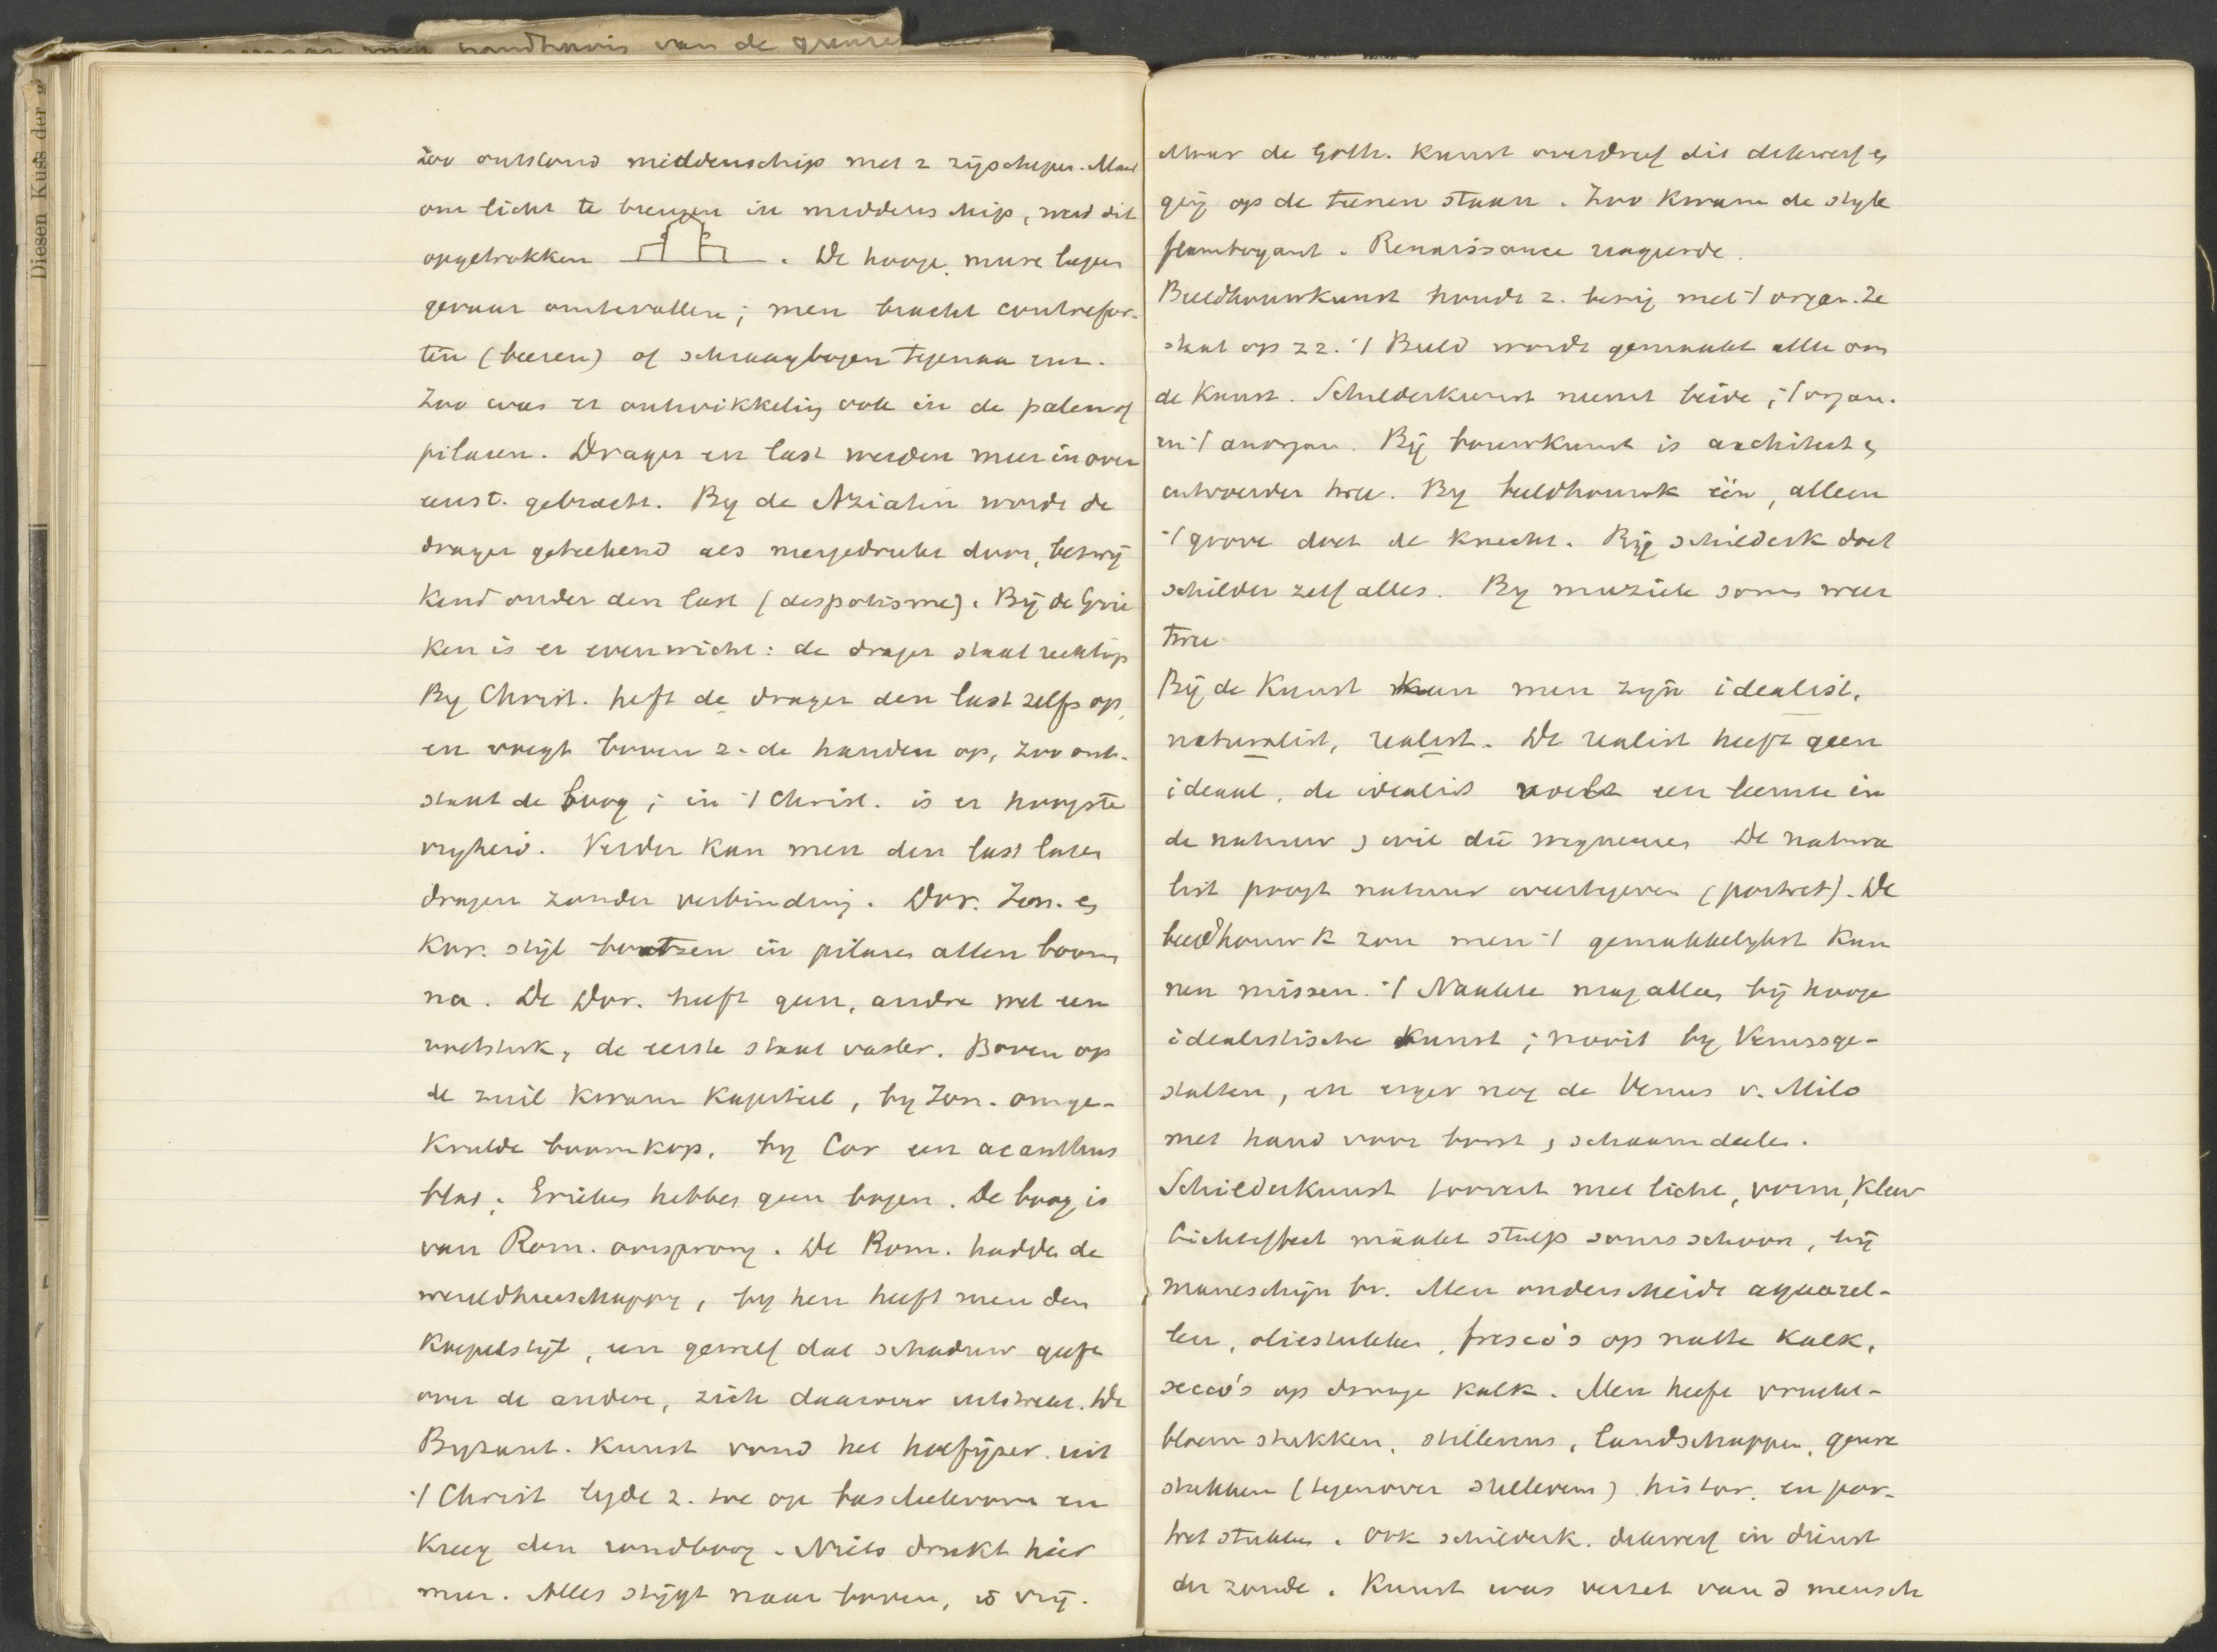 Diesen Kuss der
handhavis van de grense
Zoo ontstond middenschip met 2 zijschepen. Maar
om licht te brengen in middenschip, werd dit
opgetrokken. De hooge mure liepen
gevaar omtevallen; men bracht contrefor-
ten (beeren) of schraagbogen tegenaan.
Zoo was er ontwikkeling ook in de palen of
pilaren. Drager en last werden meer in over
eenst. gebracht. By de Aziaten wordt de
drager geteekend als neergedrukt door, bezwij
kend onder den last (despotisme). Bij de Grie
ken is er evenwicht: de drager staat rechtop
By Christ. heft de drager den last zelfs op,
en voegt boven z. de handen op, zoo ont-
staat de boog; in 't Christ. is er hoogste
vryheid. Verder kan men den last laten
dragen zonder verbinding. Dor. Ion. en
Kor. stijl bootsen in pilaren allen boom
na. De Dor. heeft geen, andre wel een
voetstuk, de eerste staat vaster. Boven op
de zuil kwam kapiteel, by Ion. omge-
krulde boomkop, by Cor een acanthus
blad. Grieken hebben geen bogen. De boog is
van Rom. oorsprong. De Rom. hadden de
wereldheerschappy, by hen heeft men den
koepelstijl, een gewelf dat schaduw geeft
over de andere, zich daarover uitstrekt. De
Byzant. kunst vond het hoefijzer uit
't Christ legde z. toe op basiliekvorm en
kreeg den rondboog. Niets drukt hier
meer. Alles stijgt naar boven, is vrij.
Maar de Goth. kunst overdreef dit dikwerf en
ging op de teenen staan. Zoo kwam de style
flamboyant. Renaissance reageerde.
Beeldhouwkunst houdt z. bezig met 't organ. Ze
staat op zz. 't Beeld wordt gemaakt alleen om
de kunst. Schilderkunst neemt beide, 't organ.
en 't anorgan. Bij bouwkunst is architect en
uitvoerder twee. By beeldhouwk één, alleen
't grove doet de knecht. Bij schilderk doet
schilder zelf alles. By muziek soms weer
twee.
Bij de Kunst kan men zijn idealist,
naturalist, realist. De realist heeft geen
ideaal, de idealist voelt een leemte in
de natuur en wil die wegnemen De natura
list poogt natuur weertegeven (portret). De
beeldhouwk zou men 't gemakkelykst kun
nen missen. 't Naakte mag alleen bij hooge
idealistische kunst; nooit by Venusge-
stalten, en erger nog de Venus v. Milo
met hand voor borst en schaamdeelen.
Schilderkunst toovert met licht, vorm, kleur
Lichteffect maakt stulp soms schoon, bij
maneschijn bv. Men onderscheidt aquarel-
len, oliestukken, fresco's op natte kalk,
secco's op drooge kalk. Men heeft vrucht-
bloemstukken, stillevens, landschappen, genre
stukken (tegenover stilleven) histor. en por-
tretstukken. Ook schilderk. dikwerf in dienst
der zonde. Kunst was verzet van d mensch